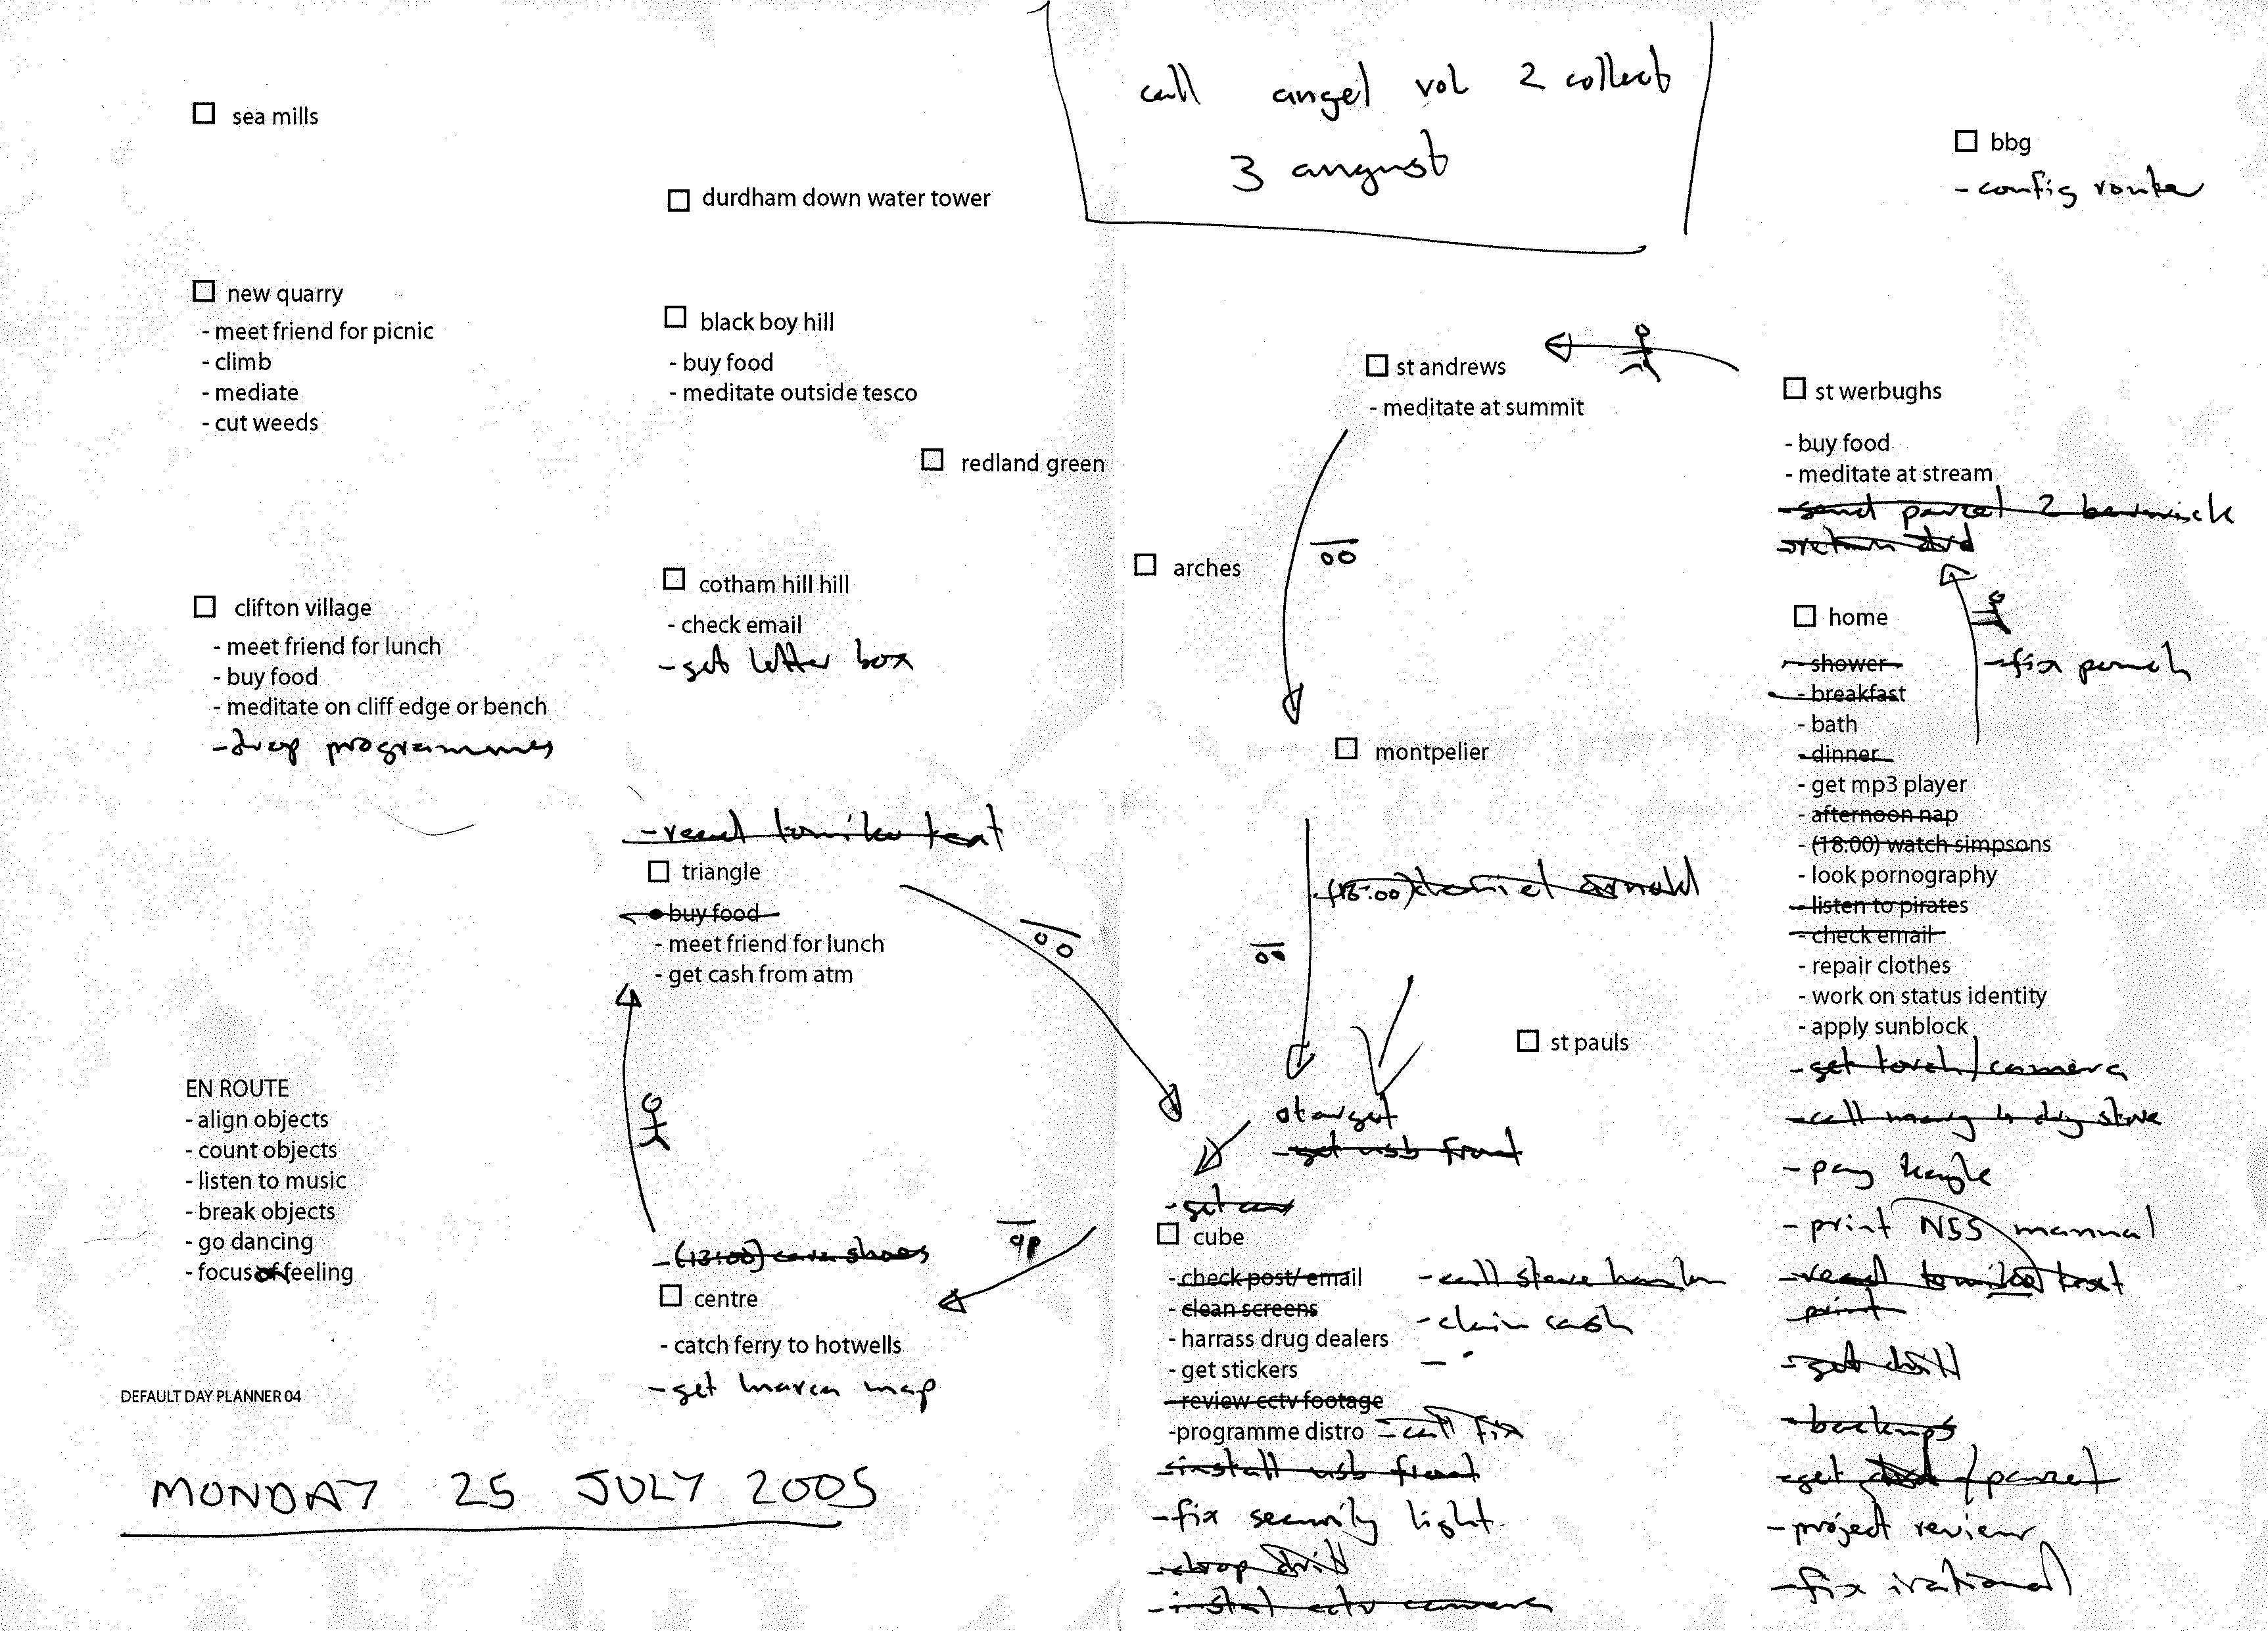 call angel vol 2 collect
3 august
sea mills
durdham down water tower
bbg
- config router
new quarry
- meet friend for picnic
- climb
- mediate
- cut weeds
black boy hill
- buy food
- meditate outside tesco
redland green
st andrews
- meditate at summit
st werbughs
- buy food
- meditate at stream
- send parcel 2 berwick
- return dvd
arches
clifton village
- meet friend for lunch
- buy food
- meditate on cliff edge or bench
- drop programmes
cotham hill hill
- check email
- get letter box
montpelier
home
- shower
- breakfast
- bath
- dinner
- get mp3 player
- afternoon nap
- (18:00) watch simpsons
- look pornography
- listen to pirates
- check email
- repair clothes
- work on status identity
- apply sunblock
- get torch / camera
- call
- pay
- print NSS manual
- read text
print
- get drill
- backups
- get dvd / parcel
- project review
- fix irational
- fix
- read text
triangle
- buy food
- meet friend for lunch
- get cash from atm
daniel arnold
st pauls
target
- get usb front
EN ROUTE
- align objects
- count objects
- listen to music
- break objects
- go dancing
- focus feeling
- (13:00) shoes
centre
- catch ferry to hotwells
- get map
- get
cube
- check post/ email
- clean screens
- harrass drug dealers
- get stickers
- review cctv footage
-programme distro - call fix
- install usb front
- fix security light
- drop drill
- instal cctv camera
- call steve
- claim cash
DEFAULT DAY PLANNER 04
MONDAY 25 JULY 2005